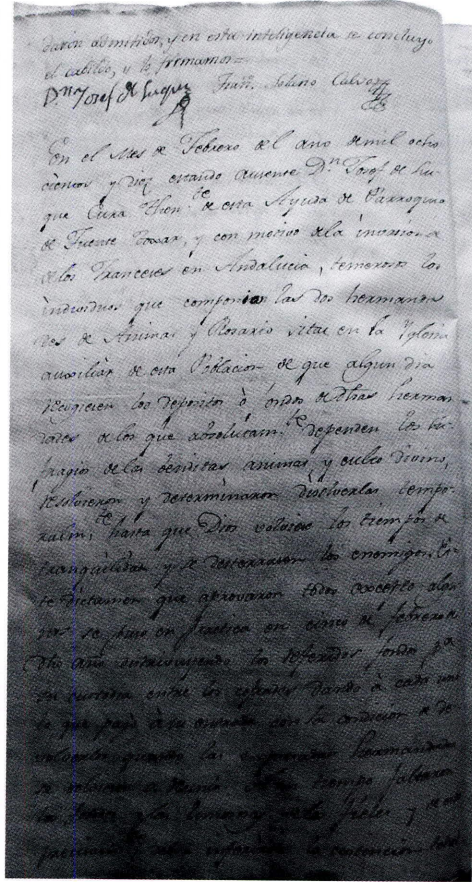 daron admitidos, y en esta inteligencia se concluyo
el cabildo, y lo firmamos =
D.n Josef de Luque Fran.co Solano Calvo
En el Mes de Febrero del año de mil ocho
cientos y diez estando ausente D.n Josef de Lu-
que Cura Then.te de esta Ayuda de Parroquia
de Fuente Tovar, y con motivo de la invasion
de los Franceses en Andalucia, temerosos los
individuos que componian las dos hermanda
des de Animas y Rosario sitas en la Yglesia
auxiliar de esta Poblacion de que algun dia
recogiesen los depositos ò fondos de dhas herman
dades de los que absolutam.te dependen los su-
fragios de las benditas animas, y culto divino,
resolvieron y determinaron disolverlas tempo-
ralm.te hasta que Dios volviese los tiempos de
tranquilidad y se desterrasen los enemigos. Es-
te dictamen que aprovaron todos excepto algu
nos se puso en practica en cinco de febrero de
dho año distribuyendo los referidos fondos p.a
su custodia entre los cofrades dando à cada uno
lo que pagò à su entrada con la condicion de de
volverlo quando las expresadas hermandades
se volviesen à reunir. tiempo faltaron
los y las limosnas de los fieles y